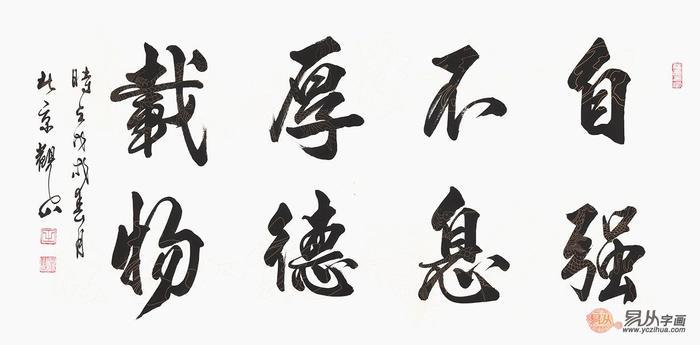 自强
不息
厚德
載物
時在戊戌春月
北京観山
易从
易从字画
www.yczihua.com